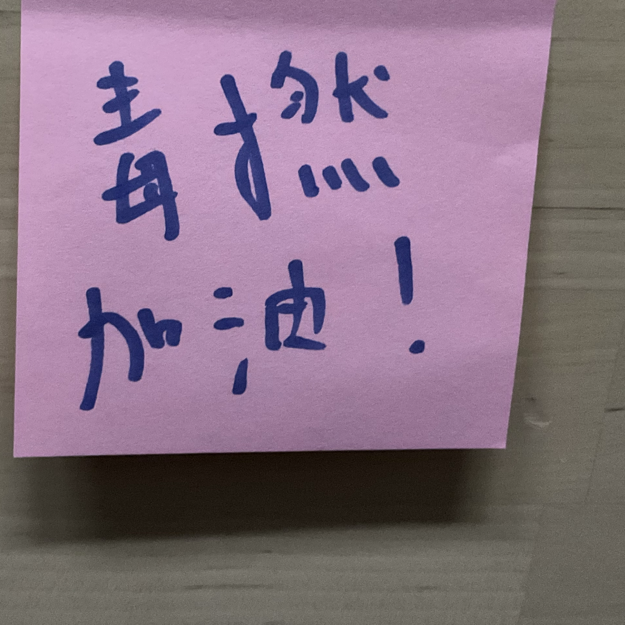 毒撚
加油！